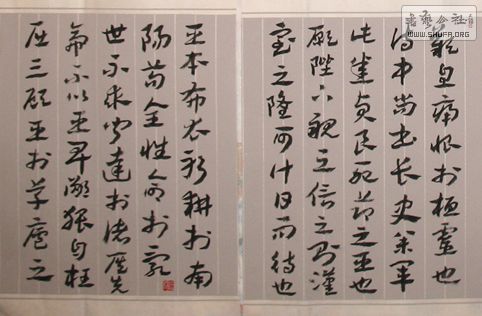 歎息痛恨於桓靈也
侍中尚書長史參軍
此悉貞良死節之臣也
願陛下親之信之則漢
室之隆可計日而待也
臣本布衣躬耕於南
陽苟全性命於亂
世不求聞達於諸侯先
帝不以臣卑鄙猥自枉
屈三顧臣於草廬之
WWW.SHUFA.ORG